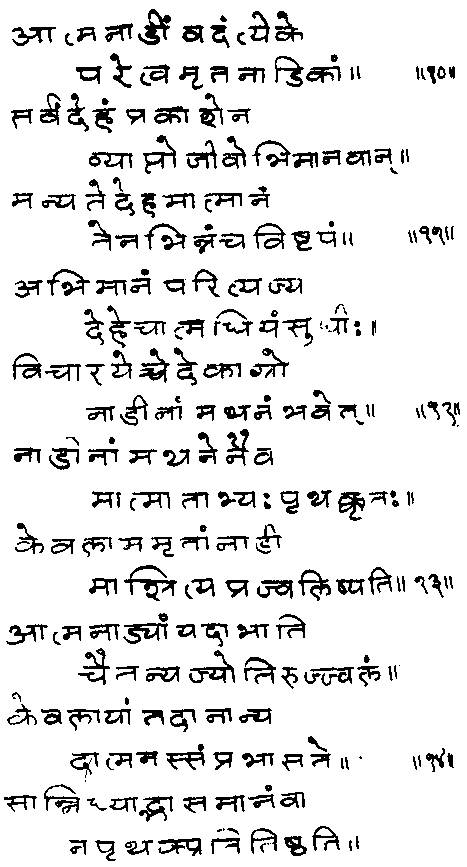 आत्मनाडीं वदंत्येके
परेत्वमृतनाडिकां॥ ॥१०॥
सर्वं देहं प्रकाशेन
व्याप्तो जीवोभिमानवान्॥
मन्यते देहमात्मानं
तेनभिन्नंच विष्टपं॥ ॥११॥
अभिमानं परित्यज्य
देहेचात्मधियं सुधीः॥
विचारयेच्चेदेकाग्रो
नाडीनां मथनं भवेत्॥ ॥१२॥
नाडीनां मथनेनैव
मात्माताभ्यः पृथक्कृतः॥
केवलाममृतां नाडी
माश्रित्य प्रज्वलिष्यति॥ १३॥
आत्मनाड्यां यदा भाति
चैतन्यज्योतिरुज्ज्वलं॥
केवलायां तदा नान्य
दात्मनस्संप्रभासते॥ ॥१४॥
सान्निध्याद्भासमानंवा
न पृथक्प्रतितिष्ठति॥